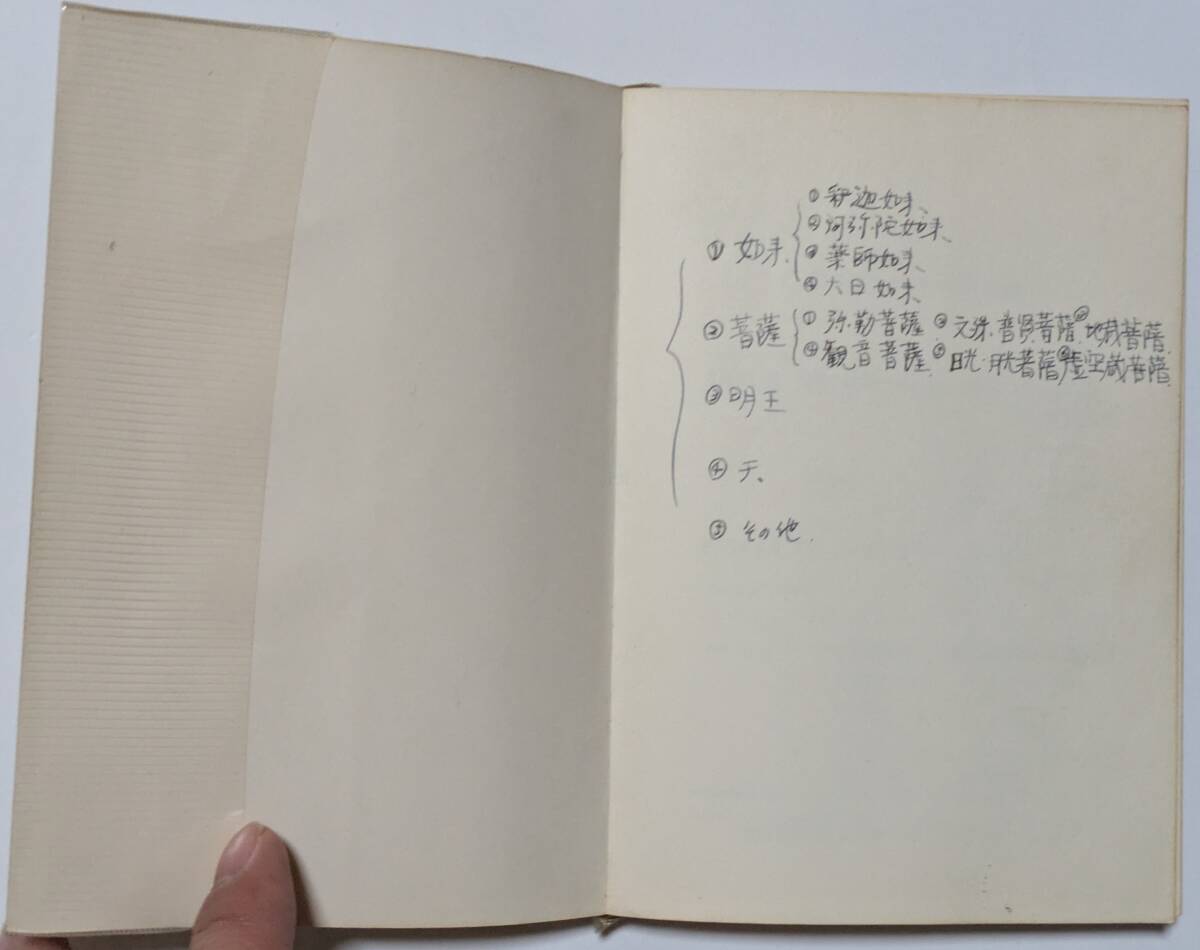 ① 如来、
① 釈迦如来、
② 阿弥陀如来、
③ 薬師如来、
④ 大日如来、
② 菩薩
① 弥勒菩薩 ② 文殊・普賢菩薩 ③ 地蔵菩薩、
④ 観音菩薩、⑤ 日光・月光菩薩 ⑥ 虚空蔵菩薩
③ 明王
④ 天、
⑤ その他、